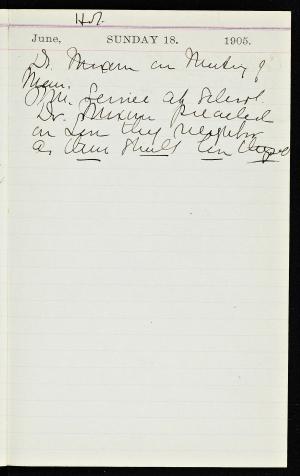 Hot.
June, SUNDAY 18. 1905.
Dr. Mixern on Meeting of
Men.
P.M. Service at School.
Dr. Mixern Preached
on Love thy Neighbor
as thou shalt Love thyself